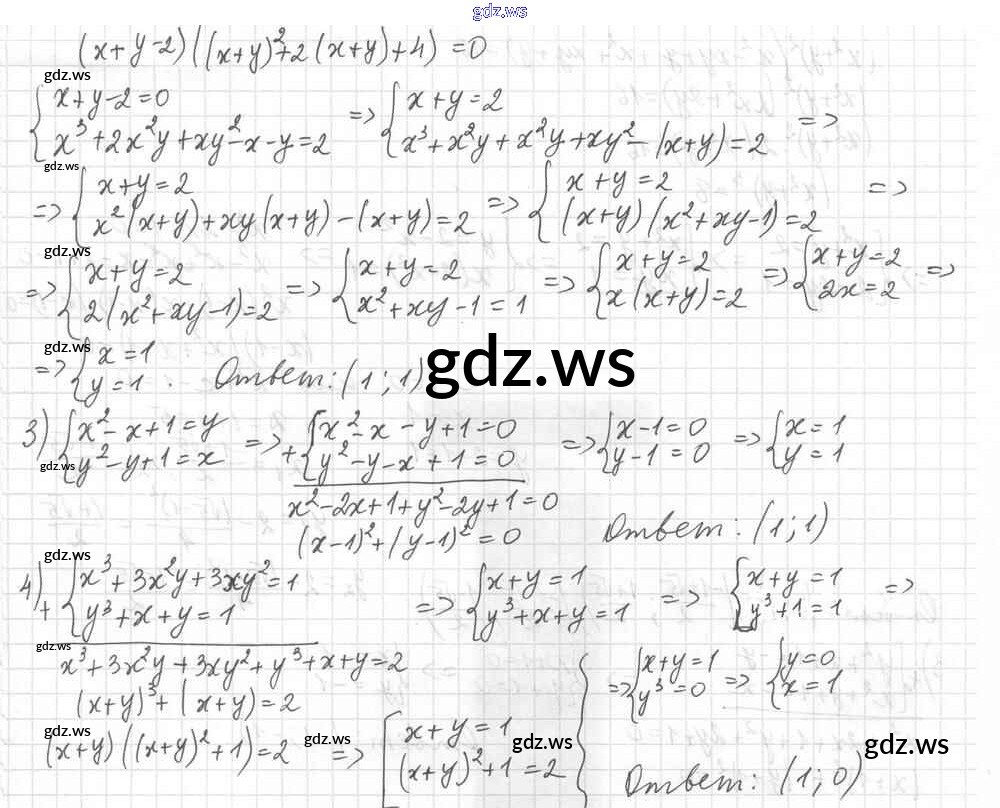 gdz.ws
(x+y-2)((x+y)²+2(x+y)+4)=0
gdz.ws
{x+y-2=0 => {x+y=2 =>
{x³+2x²y+xy²-x-y=2 {x³+x²y+x²y+xy²-(x+y)=2
gdz.ws
=> {x+y=2 => {x+y=2 =>
{x²(x+y)+xy(x+y)-(x+y)=2 {(x+y)(x²+xy-1)=2
=> {x+y=2 => {x+y=2 => {x+y=2 => {x+y=2 =>
{2(x²+xy-1)=2 {x²+xy-1=1 {x(x+y)=2 {2x=2
gdz.ws
=> {x=1
{y=1. Ответ: (1;1)
gdz.ws
3) {x²-x+1=y => + {x²-x-y+1=0 => {x-1=0 => {x=1
{y²-y+1=x {y²-y-x+1=0 {y-1=0 {y=1
gdz.ws
x²-2x+1+y²-2y+1=0
(x-1)²+(y-1)²=0 Ответ: (1;1)
gdz.ws
4) + {x³+3x²y+3xy²=1 => {x+y=1 => {x+y=1 =>
{y³+x+y=1 {y³+x+y=1 {y³+1=1
gdz.ws
x³+3x²y+3xy²+y³+x+y=2 => {x+y=1 => {y=0
(x+y)³+(x+y)=2 {y³=0 {x=1
gdz.ws
(x+y)((x+y)²+1)=2 => [x+y=1
gdz.ws
[(x+y)²+1=2
gdz.ws
gdz.ws
Ответ: (1;0)